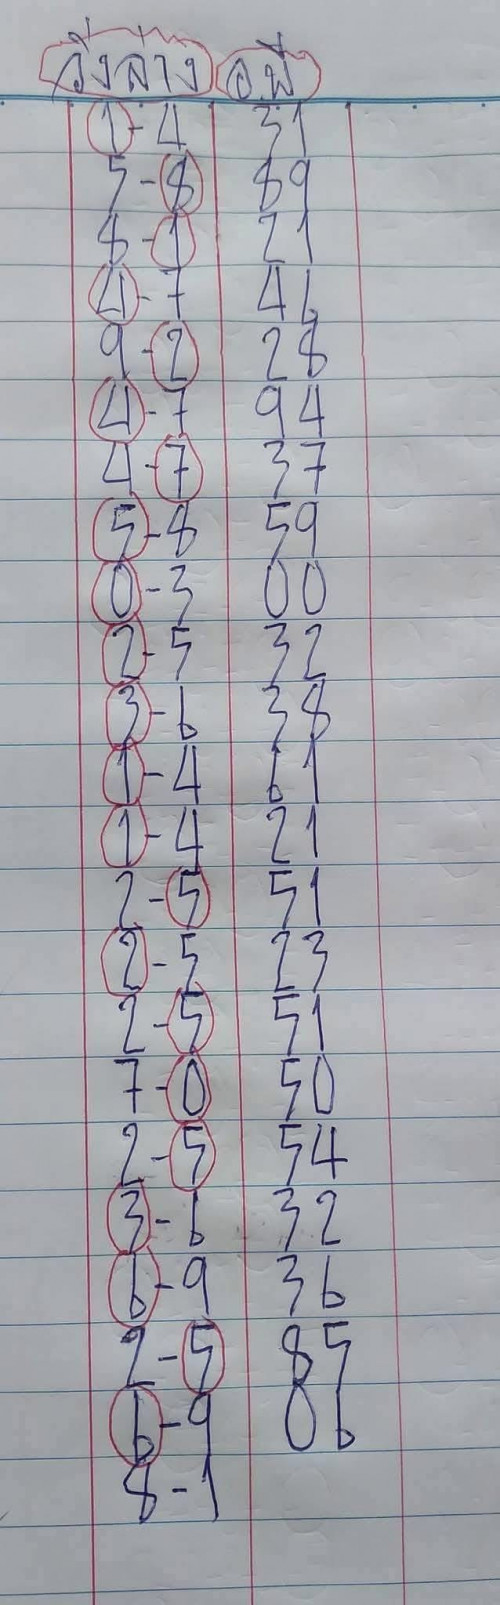 วิ่งล่าง อพี่
1-4 31
5-8 89
8-1 21
4-7 46
9-2 28
4-7 94
4-7 37
5-8 59
0-3 00
2-5 32
3-6 38
1-4 61
1-4 21
2-5 51
2-5 23
2-5 51
7-0 50
2-5 54
3-6 32
6-9 36
2-5 85
6-9 06
8-1